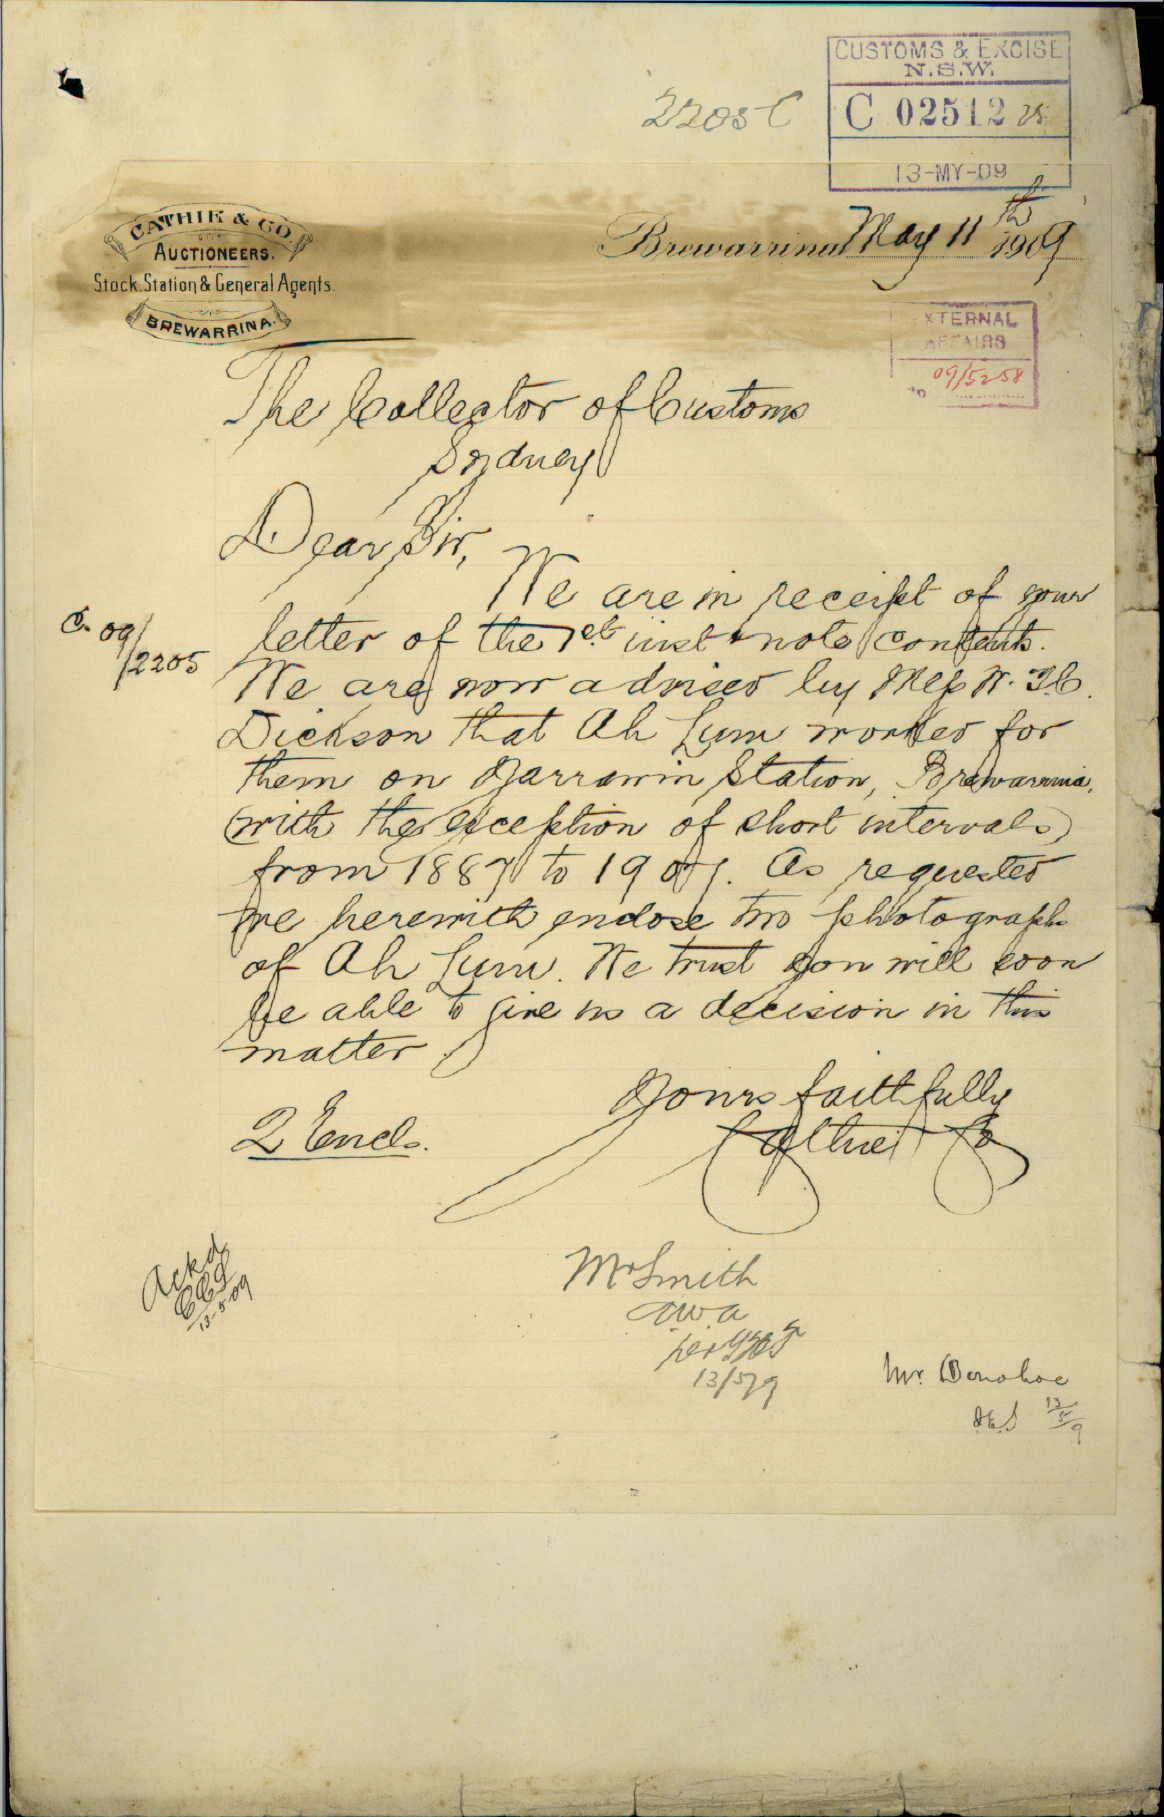 2205 C
CUSTOMS & EXCISE
N.S.W.
C 02512
13-MY-09
CATHIE & CO.
AUCTIONEERS.
Stock, Station & General Agents.
BREWARRINA.
Brewarrina May 11th 1909
EXTERNAL
AFFAIRS
09/5258
The Collector of Customs
Sydney
Dear Sir,
We are in receipt of your
C. 09/2205
letter of the 1st inst & note contents.
We are now advised by Mess W. &
Dickson that Ah Lum worked for
them on Yarrawin Station, Brewarrina,
(with the exception of short intervals)
from 1887 to 1907. As requested
we herewith enclose two photographs
of Ah Lum. We trust you will soon
be able to give us a decision in this
matter.
Yours faithfully
Cathie & Co
2 Encls.
Ackd
13-5-09
Mr Smith
a.w.a
per
13/5/9
Mr. Donohoe
13/5/9